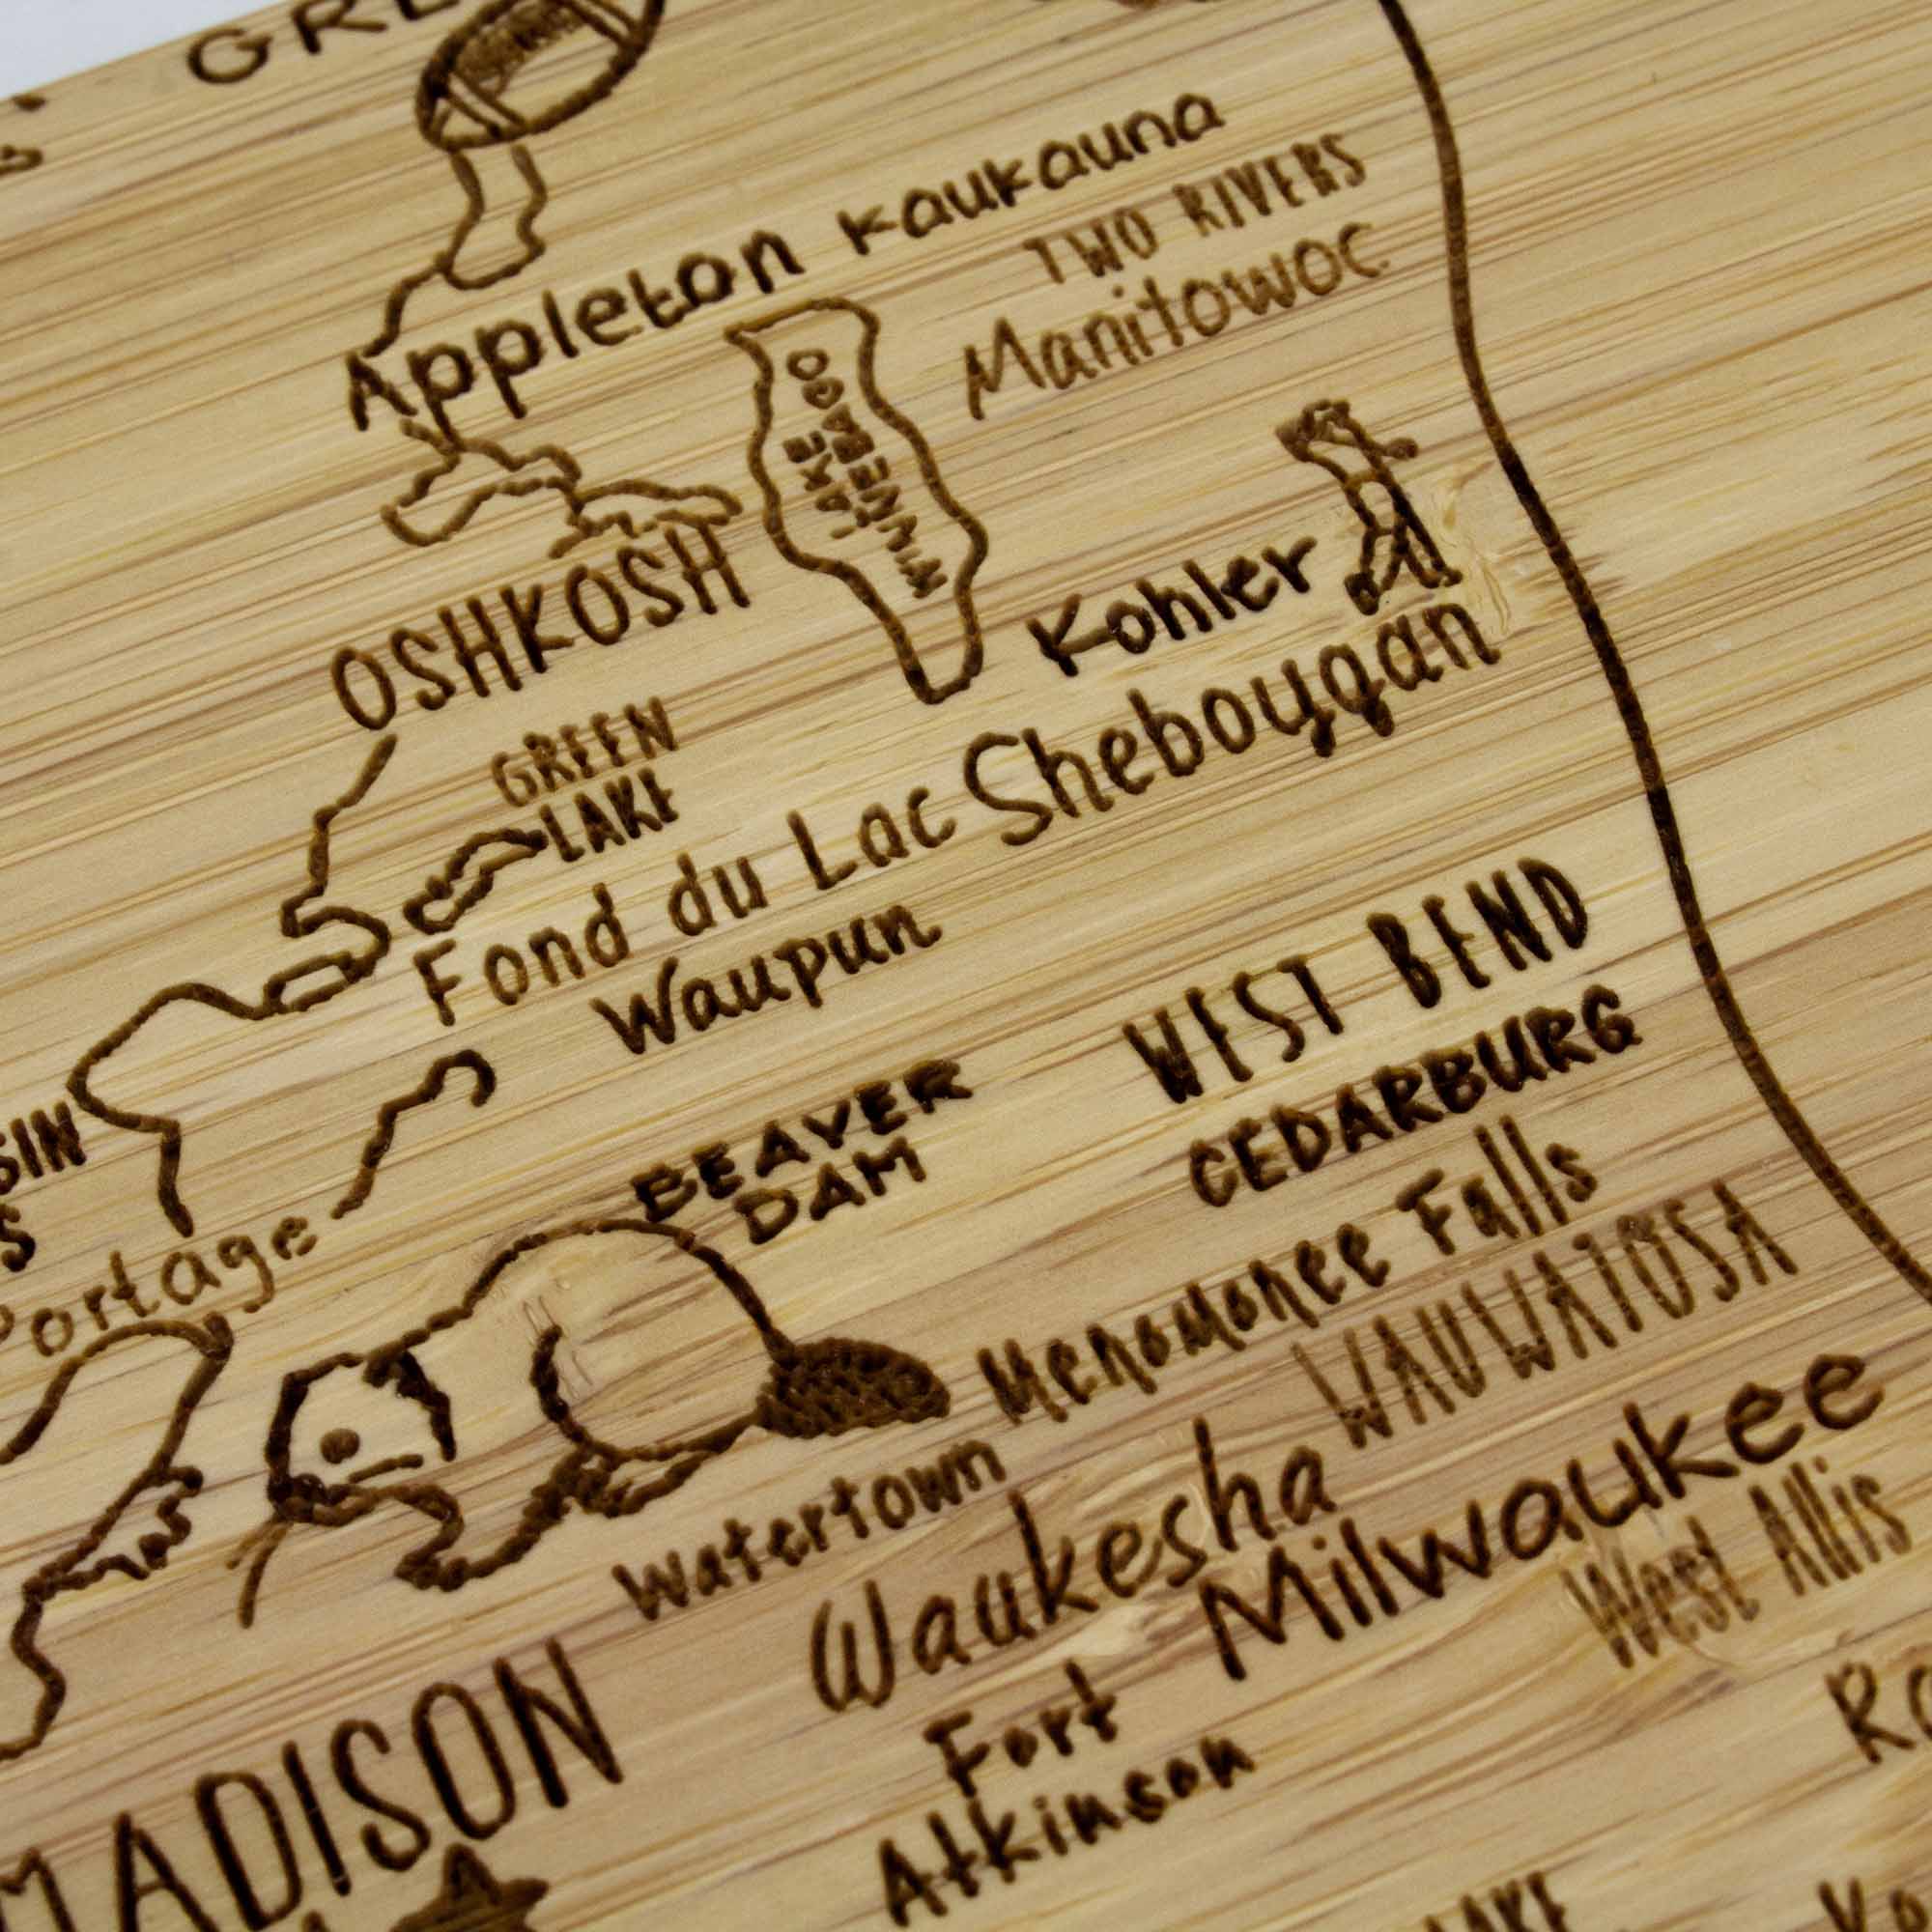 GRE
Appleton
Kaukauna
TWO RIVERS
Manitowoc
LAKE
WINNEBAGO
OSHKOSH
Kohler
Sheboygan
GREEN
LAKE
Fond du Lac
Waupun
WEST BEND
CEDARBURG
BEAVER
DAM
SIN
S
Portage
Menomonee Falls
WAUWATOSA
Watertown
Waukesha
Milwaukee
West Allis
Fort
Atkinson
MADISON
Ra
LAKE